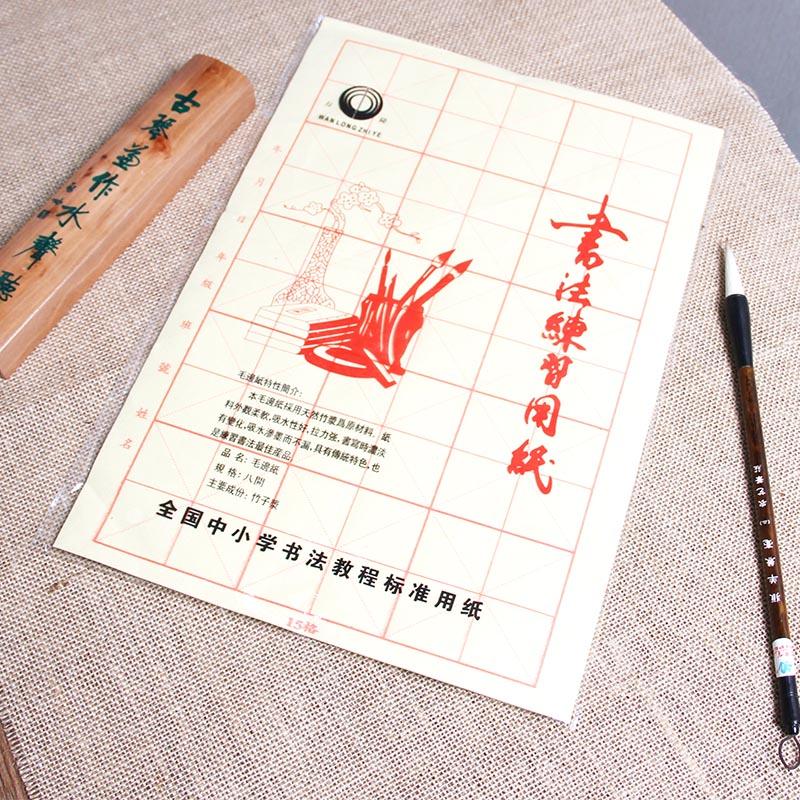 古琴並作水聲聽
萬隆
WANLONGZHIYE
年 月 日 年級 班 號 姓名
書法練習用紙
毛邊紙特性簡介：
本毛邊紙採用天然竹漿爲原材料，紙
料外觀柔軟，吸水性好，拉力强，書寫時濃淡
有變化，吸水滲墨而不漏，具有傳統特色，也
是練習書法最佳産品。
品名：毛邊紙
規格：八開
主要成份：竹子漿
全国中小学书法教程标准用纸
15格